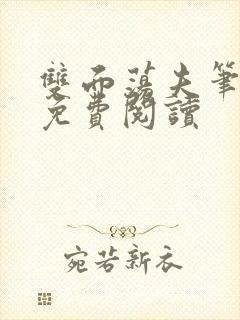 雙面蕩夫筆
免費閱讀
宛若新衣